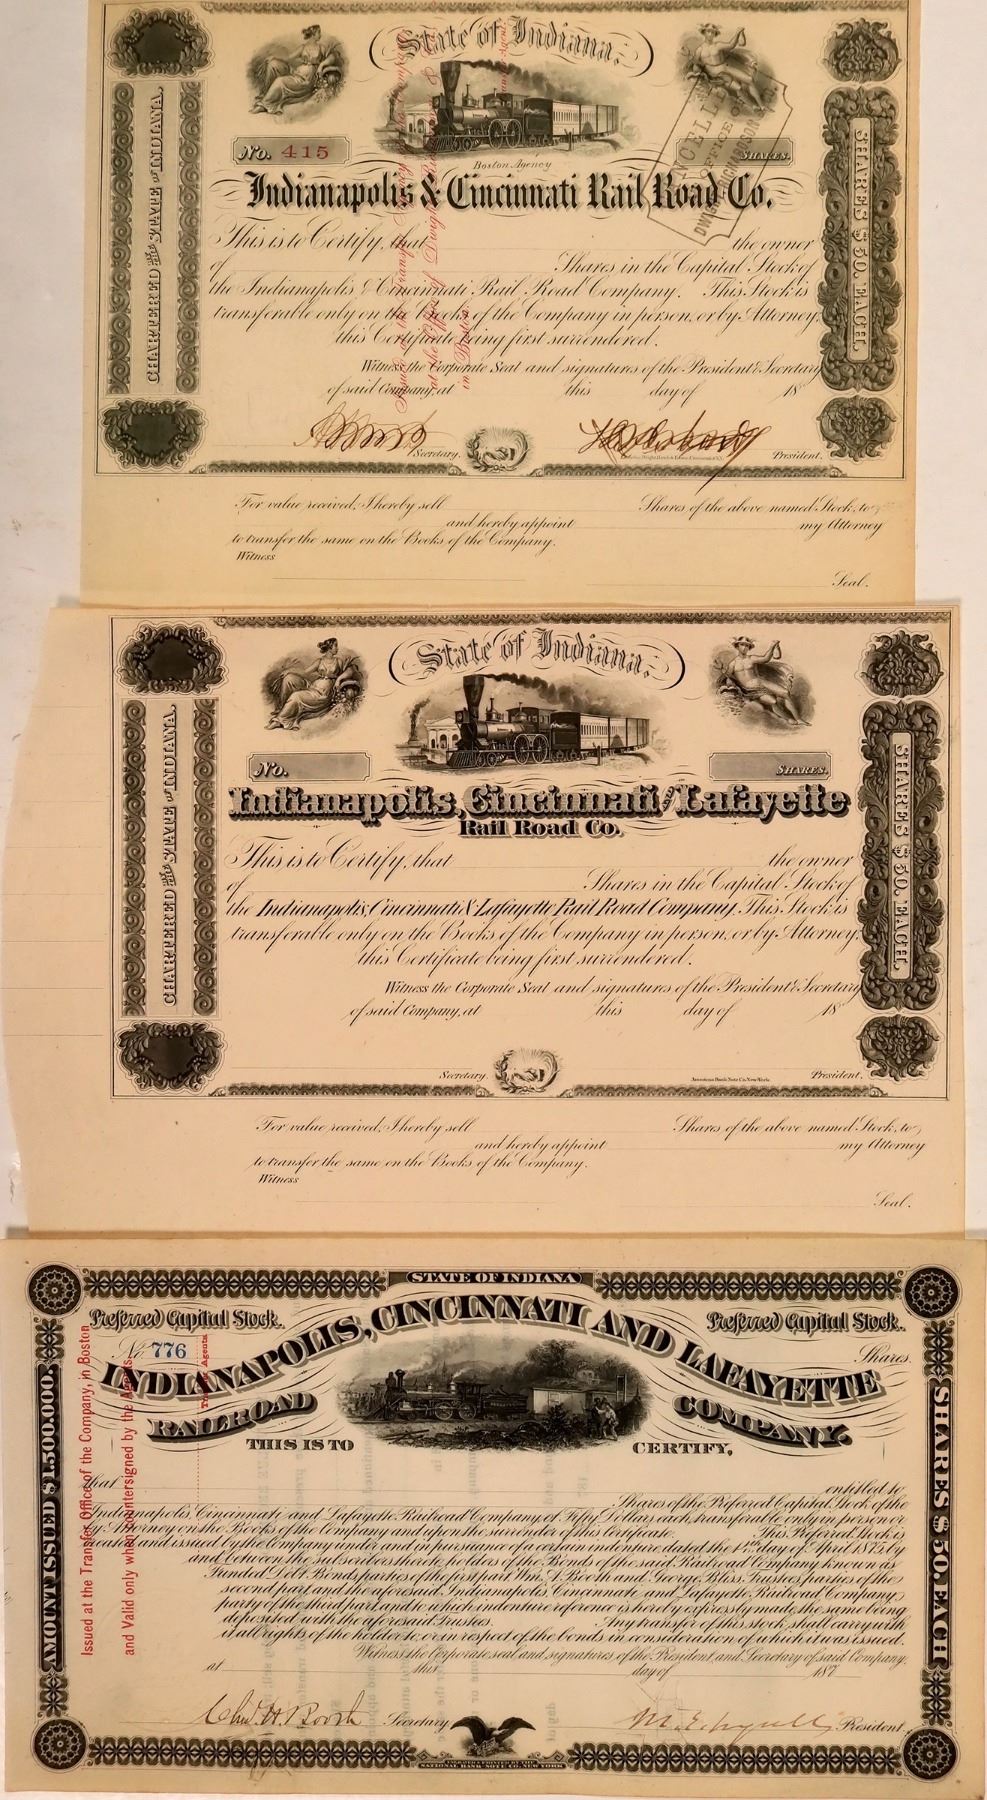 State of Indiana.
No. 415
SHARES.
Boston Agency
Indianapolis & Cincinnati Rail Road Co.
CHARTERED BY THE STATE OF INDIANA.
SHARES $50. EACH.
This is to Certify, that the owner
of Shares in the Capital Stock of
the Indianapolis & Cincinnati Rail Road Company. This Stock is
transferable only on the Books of the Company in person, or by Attorney,
this Certificate being first surrendered.
Witness the Corporate Seal and signatures of the President & Secretary
of said Company, at this day of 18
Secretary.
President.
at the Office of
in Boston
OFFICE OF
For value received, I hereby sell Shares of the above named Stock, to
and hereby appoint my Attorney
to transfer the same on the Books of the Company.
Witness
Seal.
State of Indiana.
No.
SHARES.
Indianapolis, Cincinnati and Lafayette
Rail Road Co.
CHARTERED BY THE STATE OF INDIANA.
SHARES $50. EACH.
This is to Certify, that the owner
of Shares in the Capital Stock of
the Indianapolis, Cincinnati & Lafayette Rail Road Company. This Stock is
transferable only on the Books of the Company in person, or by Attorney,
this Certificate being first surrendered.
Witness the Corporate Seal and signatures of the President & Secretary
of said Company, at this day of 18
Secretary.
American Bank Note Co. New York.
President.
For value received, I hereby sell Shares of the above named Stock, to
and hereby appoint my Attorney
to transfer the same on the Books of the Company.
Witness
Seal.
STATE OF INDIANA
Preferred Capital Stock.
Preferred Capital Stock.
No 776
Shares.
INDIANAPOLIS, CINCINNATI AND LAFAYETTE
RAILROAD COMPANY.
THIS IS TO CERTIFY,
AMOUNT ISSUED $1,500,000.
SHARES $50. EACH
Issued at the Transfer Office of the Company, in Boston
and Valid only when countersigned by the Agents.
Transfer Agents
that entitled to
Shares of the Preferred Capital Stock of the
Indianapolis, Cincinnati and Lafayette Railroad Company, of Fifty Dollars each, transferable only in person or
by Attorney on the Books of the Company and upon the surrender of this Certificate. This Preferred Stock is
created and issued by the Company under and in pursuance of a certain indenture, dated the 14th day of April 1873, by
and between the subscribers thereto, holders of the Bonds of the said Railroad Company known as
Funded Debt Bonds, parties of the first part, Wm. A. Booth and George Bliss, Trustees, parties of the
second part and the aforesaid, Indianapolis, Cincinnati and Lafayette Railroad Company,
party of the third part, and to which indenture reference is hereby expressly made, the same being
deposited with the aforesaid Trustees. Any transfer of this stock shall carry with
it all rights of the holder to, or in respect of the bonds in consideration of which it was issued.
Witness the Corporate seal and signatures of the President and Secretary of said Company,
at this day of 187
Chas. H. Booth Secretary
M. E. Ingalls President.
ENGRAVED & PRINTED BY THE
NATIONAL BANK NOTE CO. NEW YORK